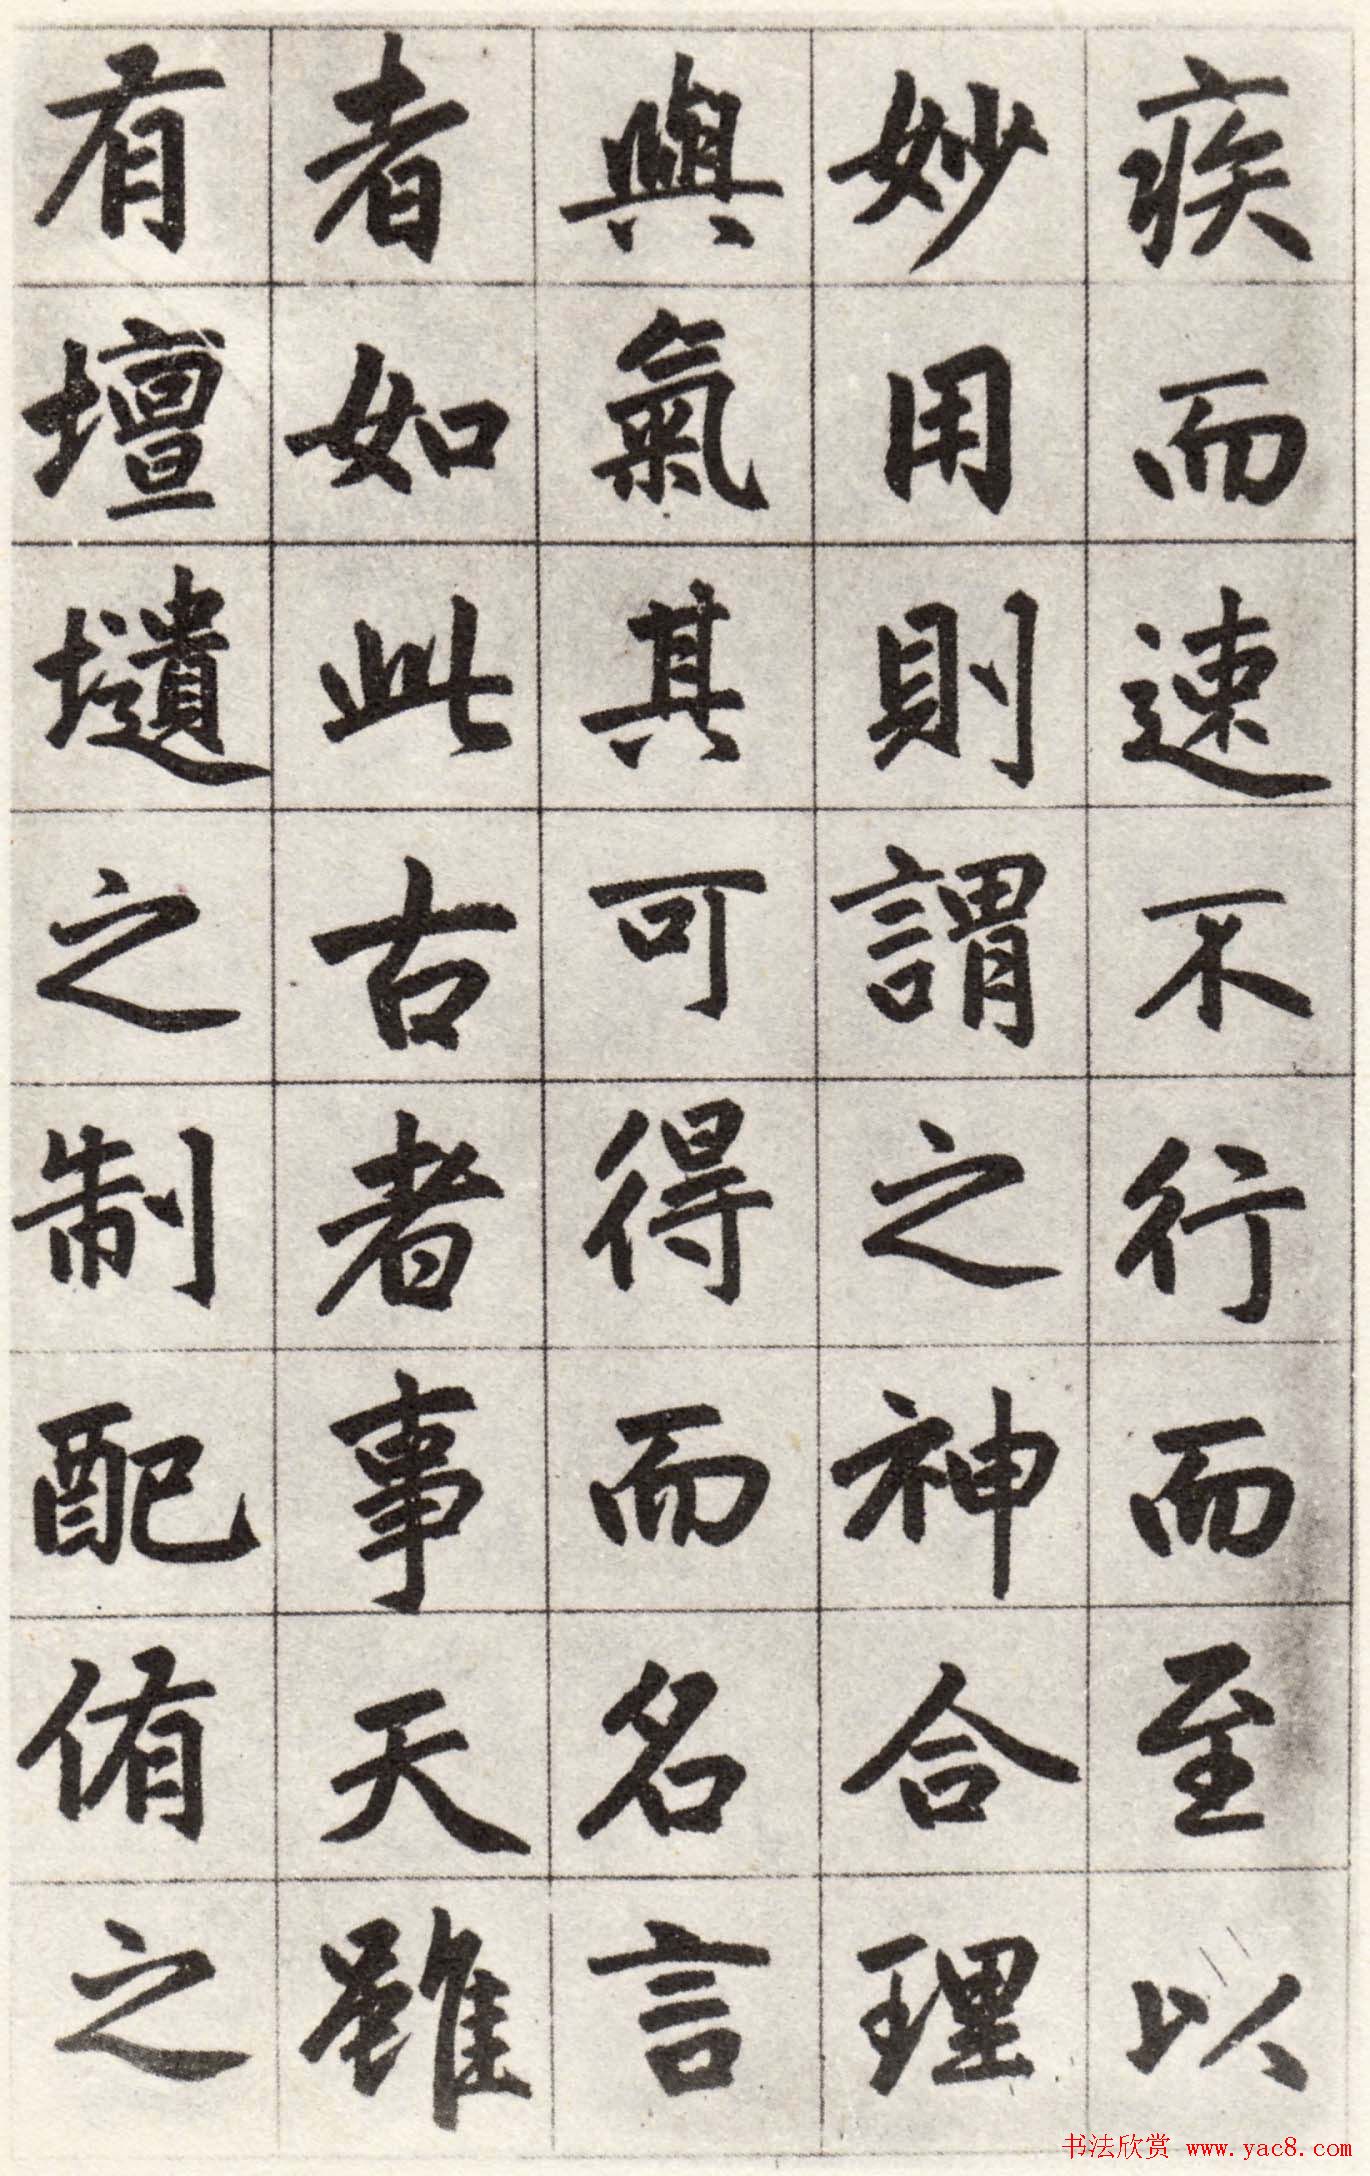 疾而速不行而至以
妙用則謂之神合理
與氣其可得而名言
者如此古者事天雖
有壇壝之制配侑之
书法欣赏 www.yac8.com